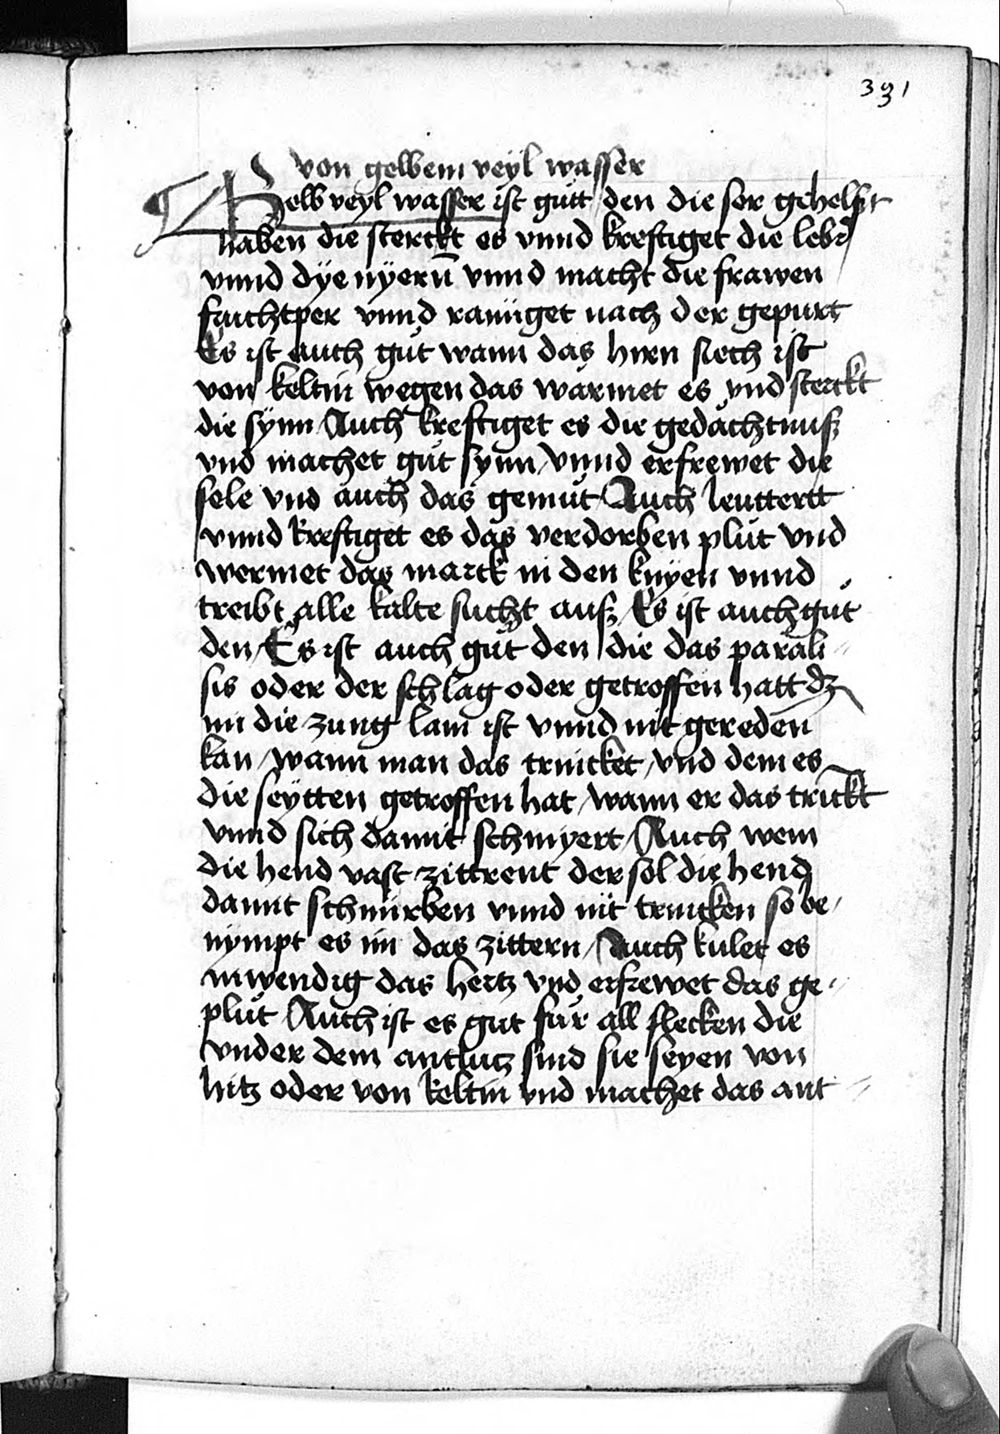 331
von gelbem veyl wasser
Gelb veyl wasser ist gůtt den die ser gehelset
haben die sterckt es vnnd kreftiget die lebr
vnnd dÿe nÿerñ vnnd macht die frawen
fruchtper vnnd rainiget nach der gepurt
Es ist auch gůt wann das hirn siech ist
von keltin wegen das wärmet es vnd sterckt
die sÿnn Auch kreftiget es die gedächtnuß
vnd machet gůt sÿnn / vnnd erfrewet die
sele vnd auch das gemůt / Auch leuttertt
vnnd kreftiget es das verdorben plůt vnd
wermet das marck in den knÿen vnnd
treibt alle kalte sucht auß / Es ist auch gůt
den / Es ist auch gůt den die das parali
sis oder der schlag oder getroffen hatt dz
im die zung lam ist vnnd nit gereden
kan / wann man das trincket / vnd dem es
die seÿtten getroffen hat / wann er das trinckt
vnnd sich damit schmyert / Auch wem
die hend vast zittrent der sol die hend
damit schmirben vnnd nit trincken so be
nÿmpt es im das zittern / Auch kulet es
inwendig das hertz vnd erfrewet das ge
plůt Auch ist es gůt für all flecken die
vnder dem antlutz sind sie seyen von
hitz oder von keltin vnd machet das ant